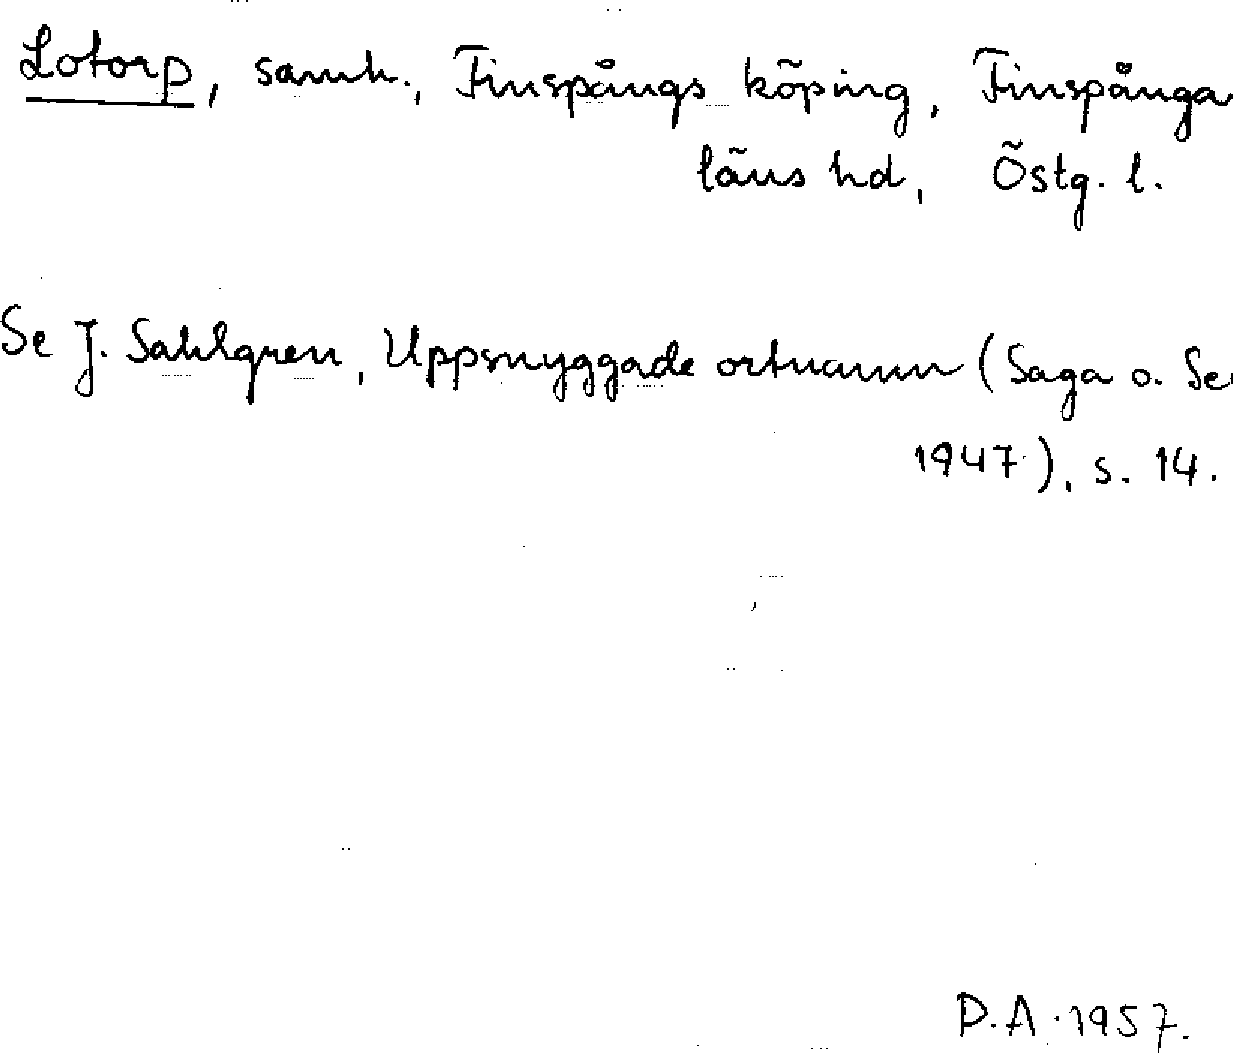 Lotorp, samh., Finspångs köping, Finspånga
läns hd, Östg. l.
Se J. Sahlgren, Uppsnyggade ortnamn (Saga o. Se
1947), s. 14.
P.A. 1957.